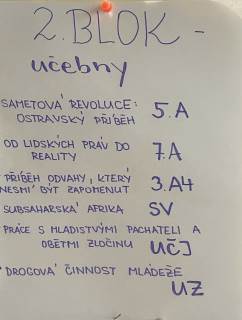 2. BLOK -
učebny
SAMETOVÁ REVOLUCE:
OSTRAVSKÝ PŘÍBĚH 5.A
OD LIDSKÝCH PRÁV DO
REALITY 7.A
PŘÍBĚH ODVAHY, KTERÝ
NESMÍ BÝT ZAPOMENUT 3.A4
SUBSAHARSKÁ AFRIKA SV
PRÁCE S MLADISTVÝMI PACHATELI A
OBĚTMI ZLOČINU UČJ
DROGOVÁ ČINNOST MLÁDEŽE
UZ